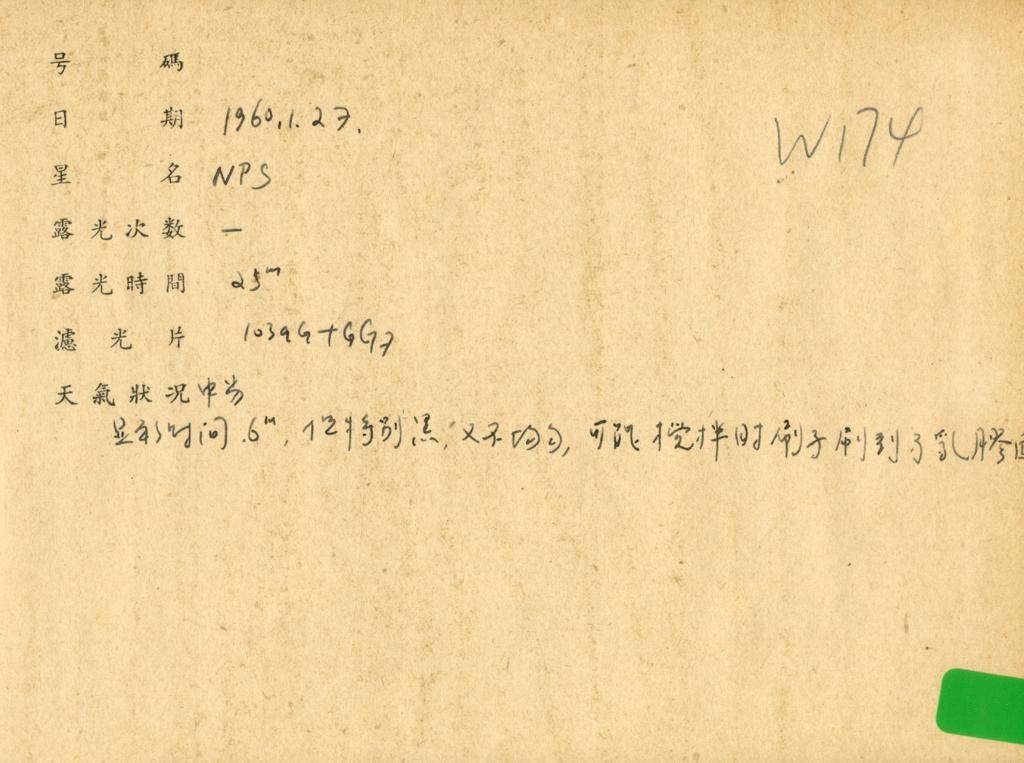 号碼
日期 1960.1.27.
W174
星名 NPS
露光次数 一
露光時間 25ᵐ
濾光片 103aG+GG7
天氣狀况 中当
显影时间 6ᵐ, 但特别黑, 又不均匀, 可能搅拌时刷子刷到了乳膠面